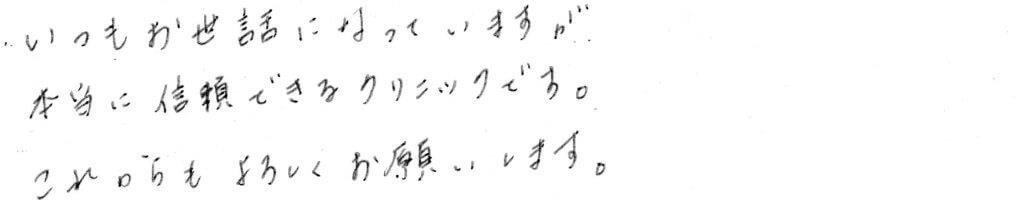 いつもお世話になっていますが
本当に信頼できるクリニックです。
これからもよろしくお願いします。